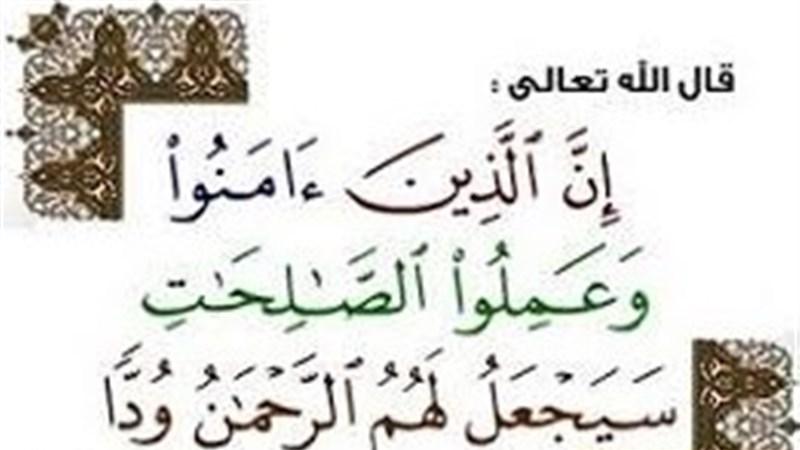 قال الله تعالى :
إِنَّ ٱلَّذِينَ ءَامَنُوا۟
وَعَمِلُوا۟ ٱلصَّـٰلِحَـٰتِ
سَيَجْعَلُ لَهُمُ ٱلرَّحْمَـٰنُ وُدًّا